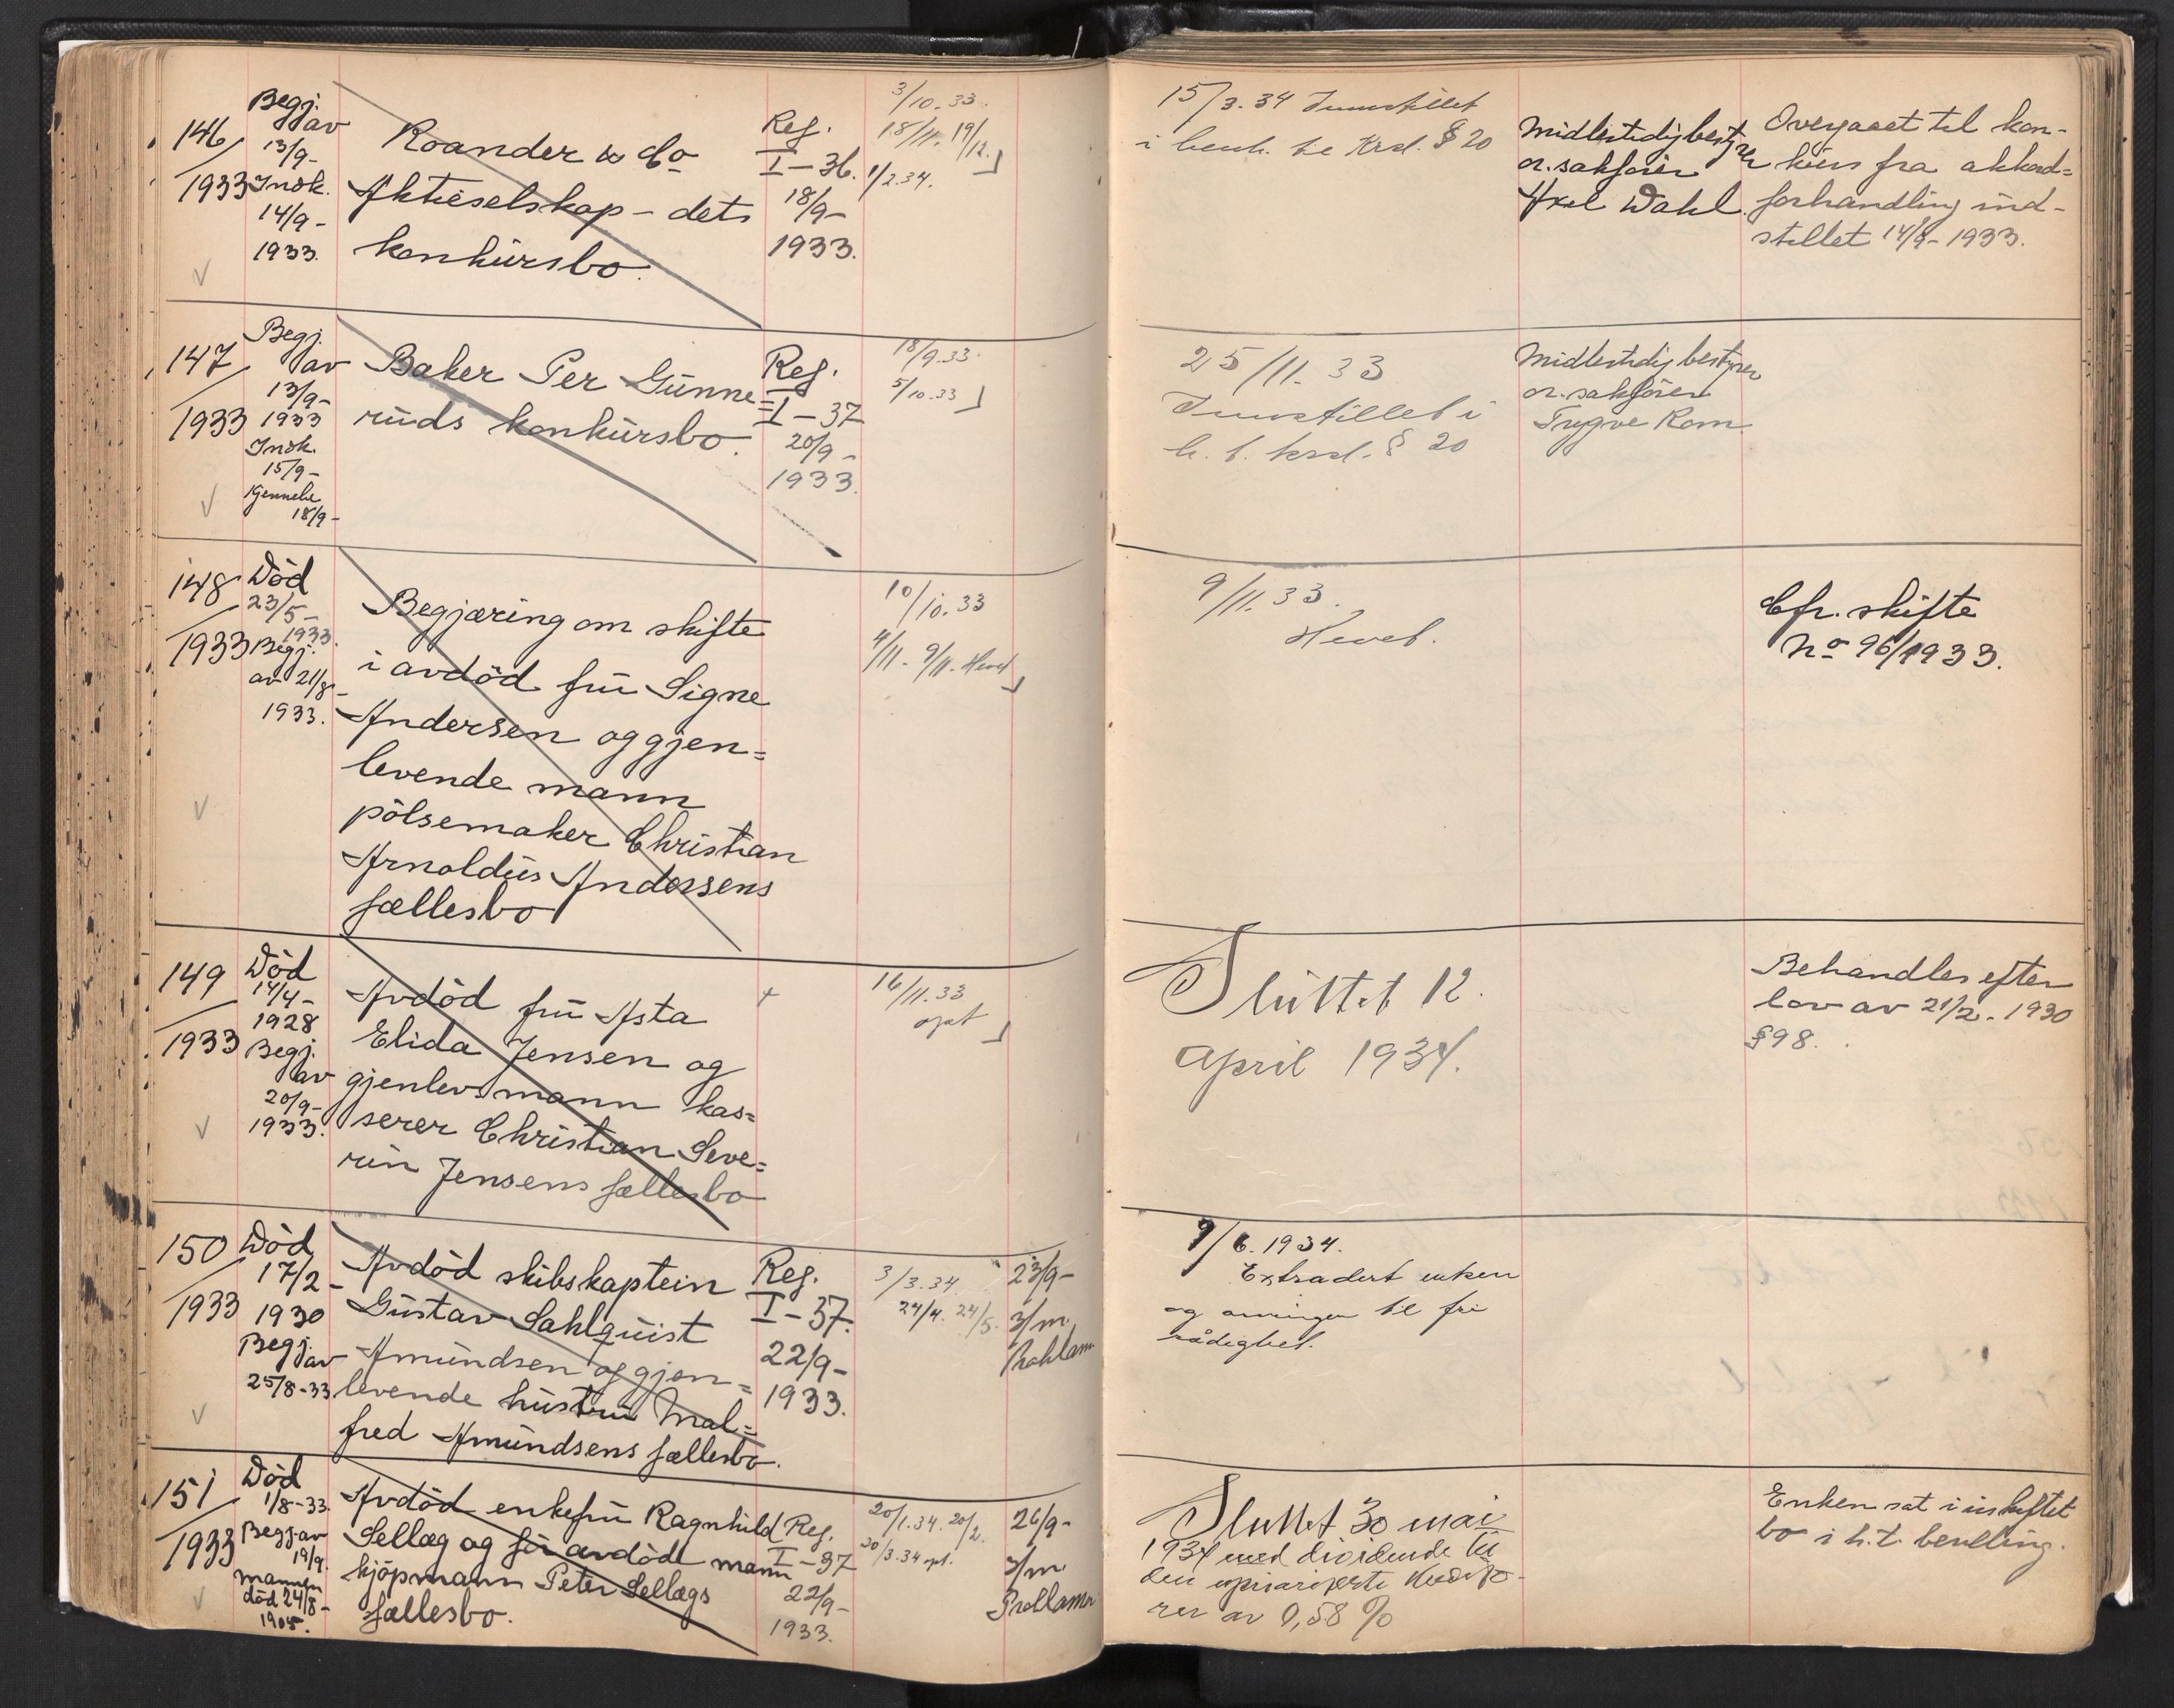 146
1933
Begj.
av
13/9-
Innk.
14/9-
1933.
Roander & Co
Aktieselskap - dets
konkursbo.
Reg.
I-36.
18/9-
1933.
3/10-33.
18/11. 19/12.
1/2.34.
15/3.34 Innstillet
i henh. til Krsl. § 20
Midlertidig bestyrer
or. sakfører
Axel Dahl.
Overgaaet til kon-
kurs fra akkord=
forhandling ind-
stillet 14/9-1933.
147
1933
Begj.
av
13/9-
1933
Innk.
15/9-
Kjennelse
18/9-
Baker Per Gunne=
ruds konkursbo.
Reg.
I-37
20/9-
1933.
18/9.33.
5/10.33
25/11.33
Innstillet i
h. t. krsl. § 20
Midlertidig bestyrer
or. sakfører
Trygve Rom.
148
1933
Död
23/5-
1933.
Begj.
av 21/8-
1933.
Begjæring om skifte
i avdöd fru Signe
Andersen og gjen=
levende mann
pölsemaker Christian
Arnoldus Andersens
fællesbo
10/10.33
4/11- 9/11- Hevet
9/11.33.
Hevet.
Cfr. skifte
No 96/1933.
149
1933
Död
14/4-
1928
Begj.
av
20/9-
1933.
Avdöd fru Asta
Elida Jensen og
gjenlev. mann kas=
serer Christian Seve=
rin Jensens fællesbo
16/11.33
opt
Sluttet 12.
April 1934.
Behandles efter
lov av 21/2-1930
§98.
150
1933
Död
17/2-
1930
Begj.
av
25/8-33
Avdöd skibskaptein
Gustav Sahlquist
Amundsen og gjen=
levende hustru Mal=
fred Amundsens fællesbo.
Reg.
I-37.
22/9-
1933.
3/3.34.
24/4. 24/5.
23/9-
3/m.
Proklama
9/6.1934.
Extradert enken
og arvingene til fri
rådighet.
151
1933
Död
1/8-33.
Begj av
19/9.
Mannen
död 24/8-
1905.
Avdöd enkefru Ragnhild
Sellæg og för avdöde mann
kjöpmann Peter Sellægs
fællesbo.
Reg.
I-37
22/9-
1933.
20/1.34. 20/2.
20/3.34 opt.
26/9-
3/m
Proklama
Sluttet 30 mai
1934 med dividende til
den uprioriterte kredito-
rer av 0,58 %
Enken sat i uskiftet
bo i h.t. bevilling.